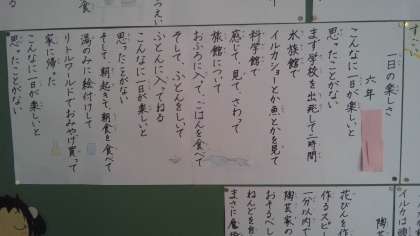 一日の楽しさ
六年
こんなに一日が楽しいと
思ったことがない
まず学校を出発して二時間
水族館で
イルカショーとか魚とかを見て
科学館で
感じて、見て、さわって
旅館について
おふろに入って、ごはんを食べて
そして、ふとんをしいて
ふとんに入ってねる
こんなに一日が楽しいと
思ったことがない
そして朝起きて、朝食を食べて
湯のみに絵付けして
リトルワールドでおみやげ買って
家に帰った
こんなに一日が楽しいと
思ったことがない
イルカは
陶芸
花びんを作
作るスピー
一分以内で
おそるべし
陶芸家の
ねんどを
まさに